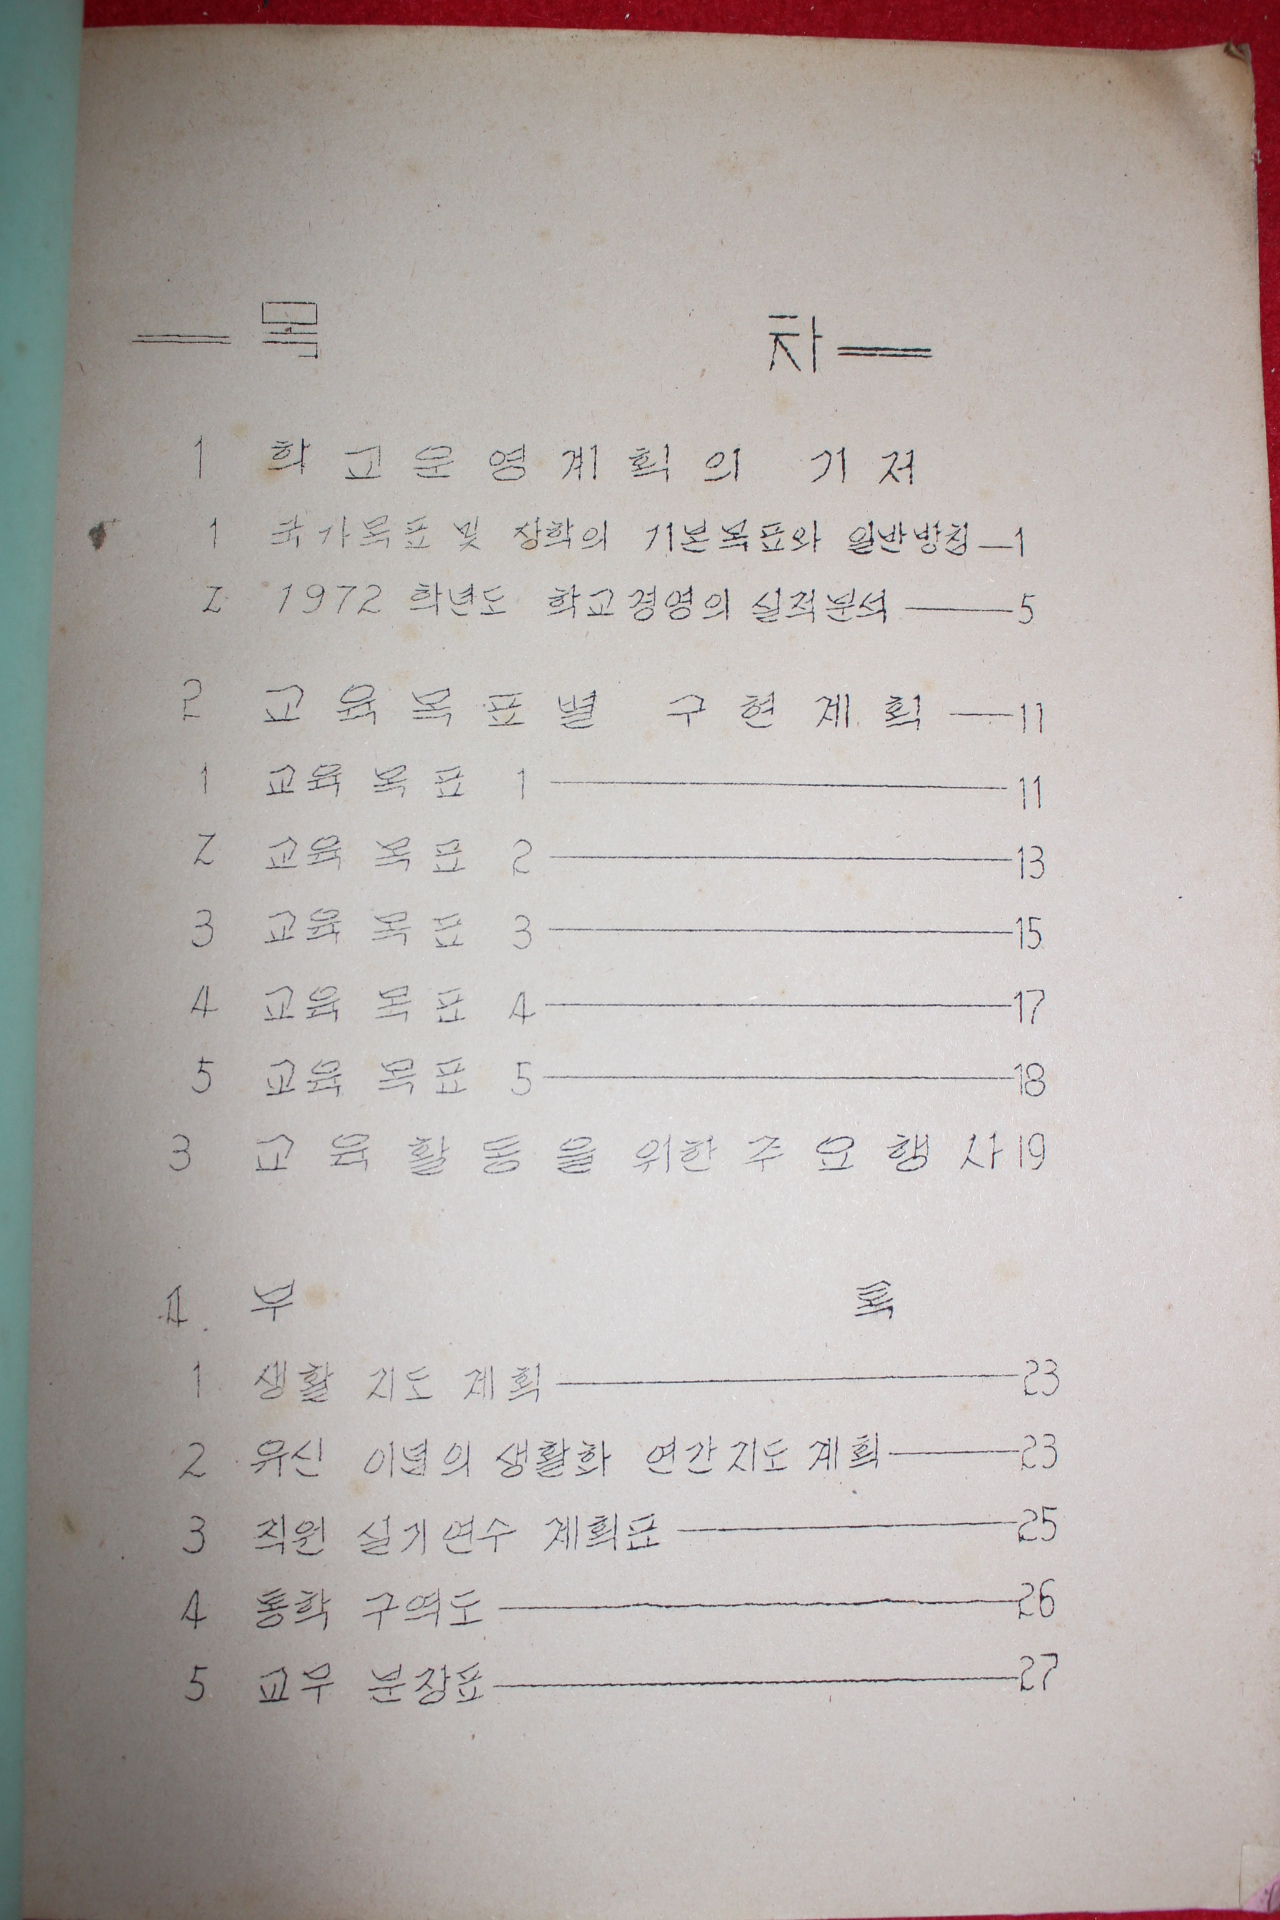 목 차
1 학교운영계획의 기저
1 국가목표 및 장학의 기본목표와 일반방침 1
2 1972 학년도 학교경영의 실적분석 5
2 교육목표별 구현계획 11
1 교육 목표 1 11
2 교육 목표 2 13
3 교육 목표 3 15
4 교육 목표 4 17
5 교육 목표 5 18
3 교육활동을 위한 주요행사 19
4. 부 록
1 생활 지도 계획 23
2 유신 이념의 생활화 연간지도 계획 23
3 직원 실기연수 계획표 25
4 통학 구역도 26
5 교무 분장표 27